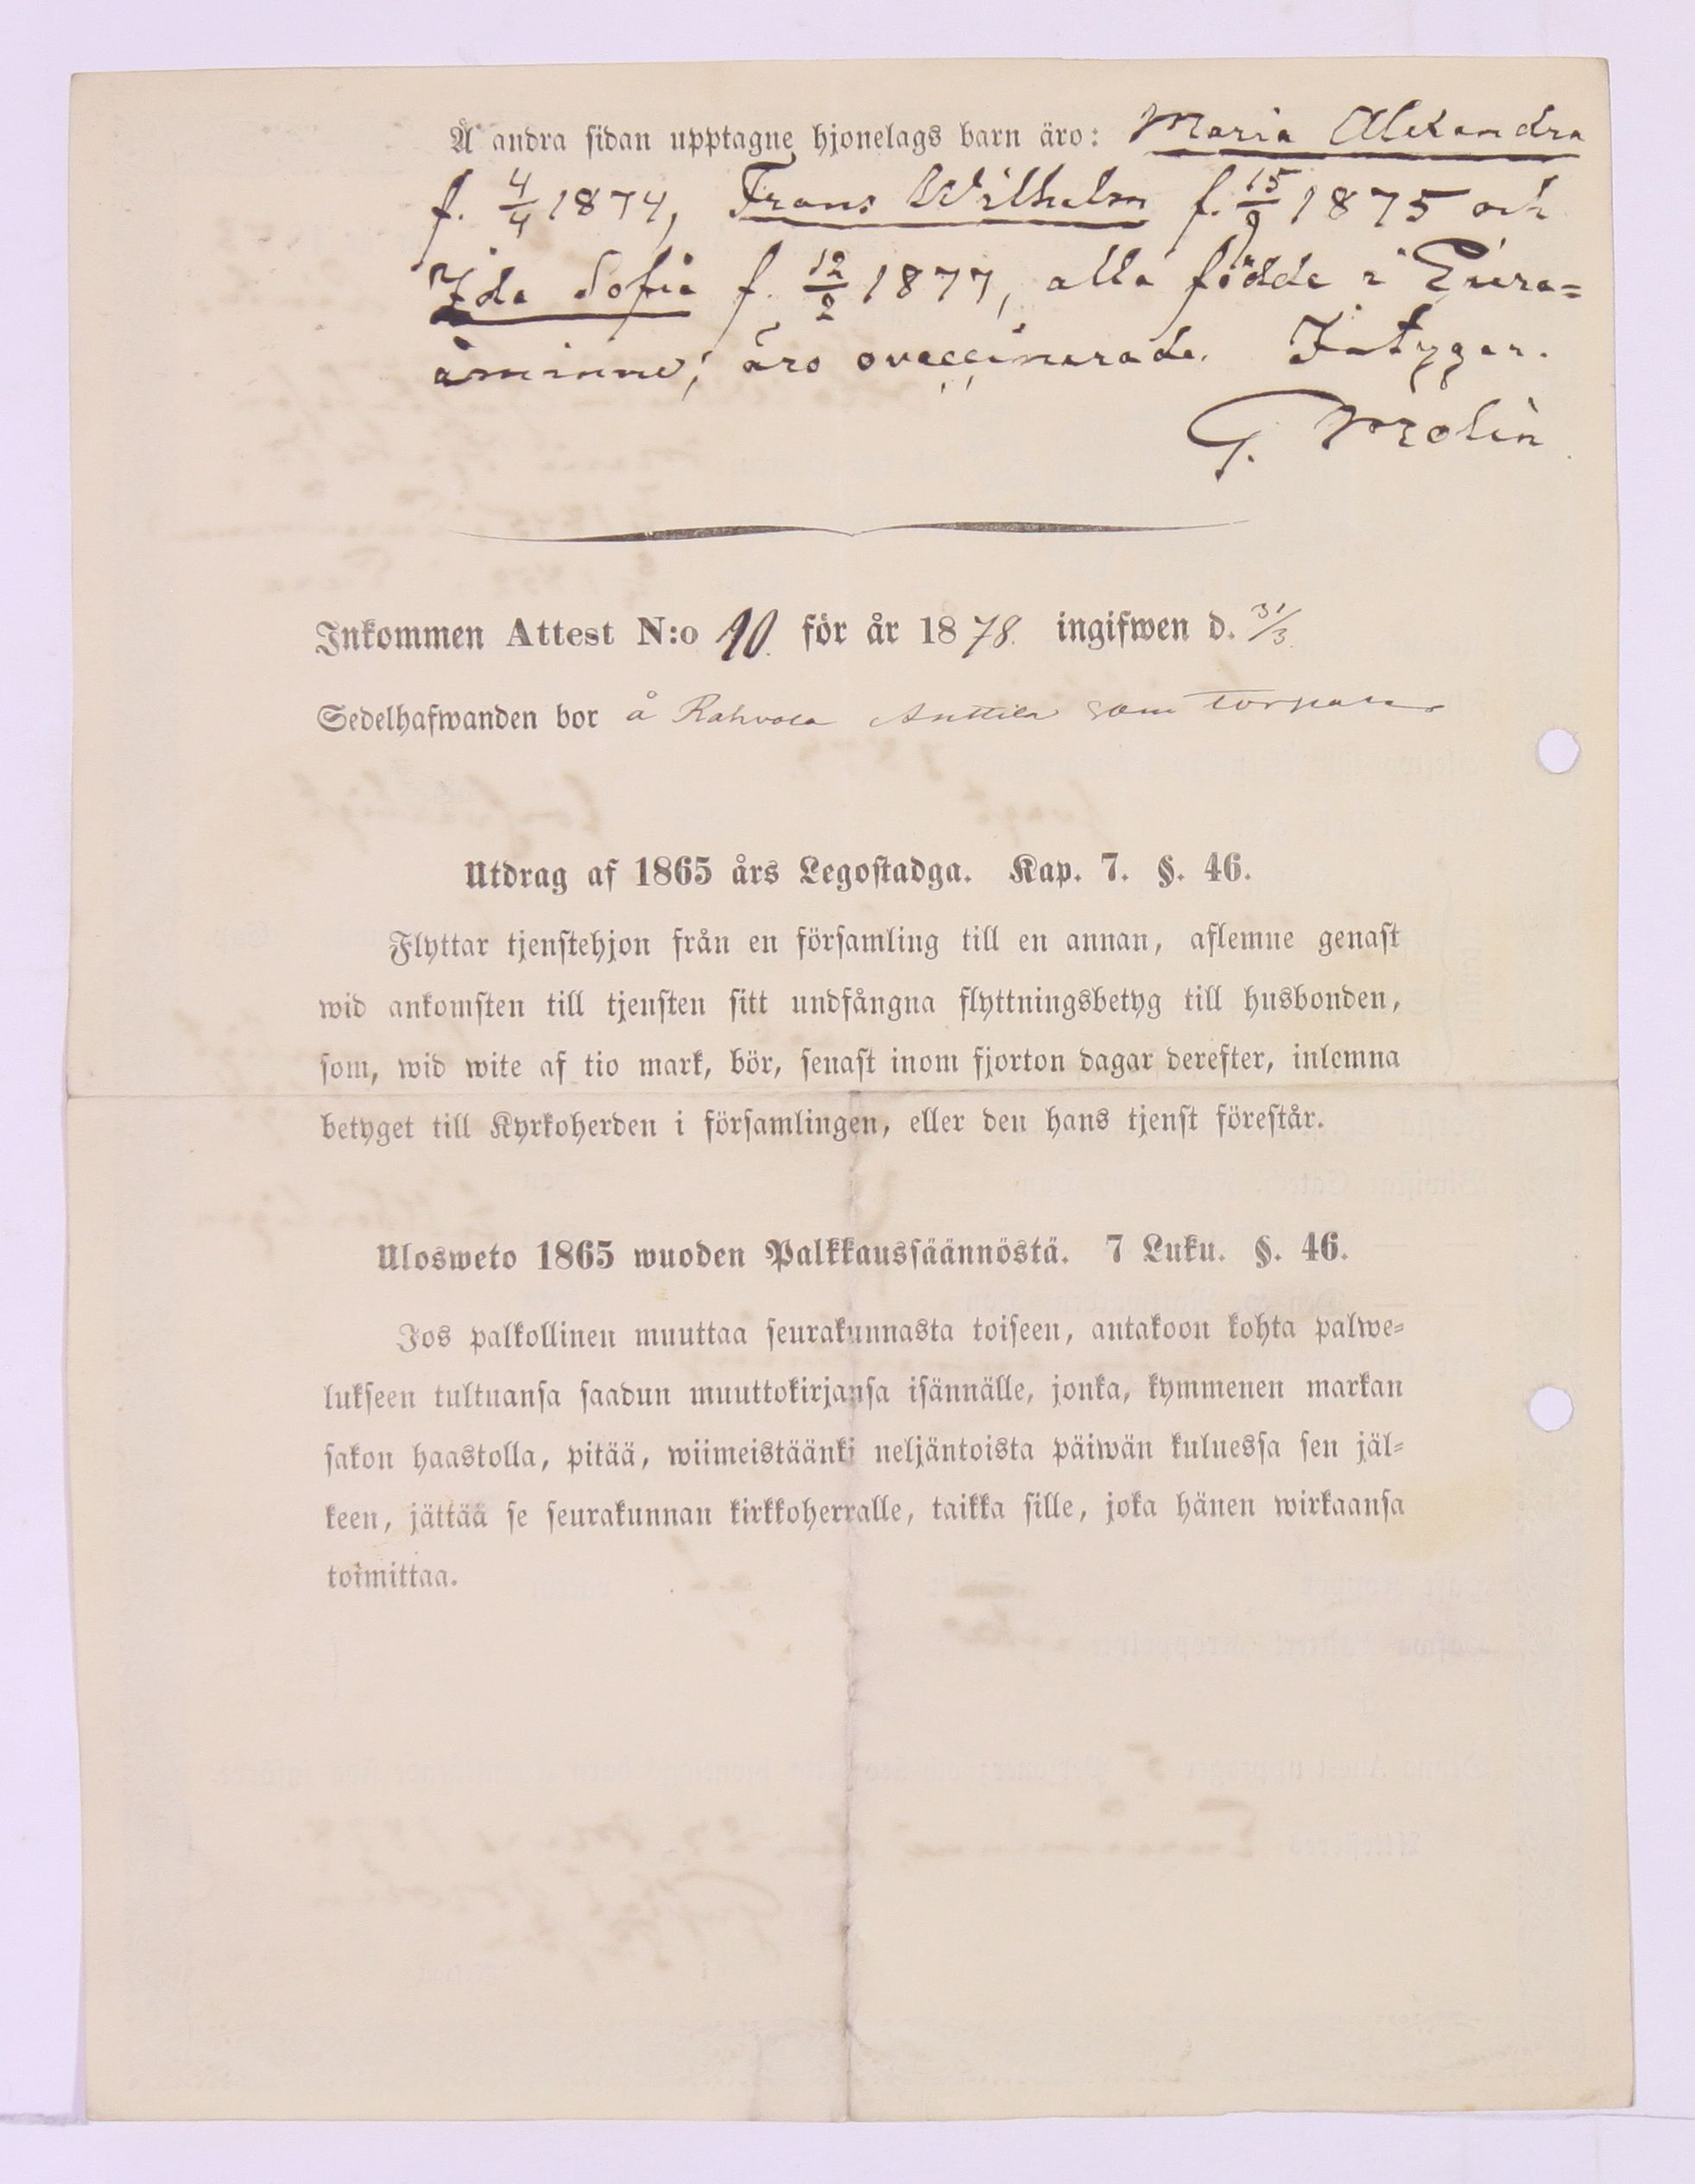 Å andra sidan upptagne hjonelags barn äro: Maria Alexandra
f. 4/4 1874, Frans Wilhelm f. 15/9 1875 och
Ida Sofia f. 12/2 1877, alla födde i Eura=
åminne, äro ovaccinerade. Intygar.
G. Molin
Inkommen Attest N:o 10. för år 1878. ingifwen d. 31/3.
Sedelhafwanden bor å Rahvola Anttila som torpare
Utdrag af 1865 års Legostadga. Kap. 7. §. 46.
Flyttar tjenstehjon från en församling till en annan, aflemne genast
wid ankomsten till tjensten sitt undfångna flyttningsbetyg till husbonden,
som, wid wite af tio mark, bör, senast inom fjorton dagar derefter, inlemna
betyget till Kyrkoherden i församlingen, eller den hans tjenst förestår.
Ulosweto 1865 wuoden Palkkaussäännöstä. 7 Luku. §. 46.
Jos palkollinen muuttaa seurakunnasta toiseen, antakoon kohta palwe=
lukseen tultuansa saadun muuttokirjansa isännälle, jonka, kymmenen markan
sakon haastolla, pitää, wiimeistäänki neljäntoista päiwän kuluessa sen jäl=
keen, jättää se seurakunnan kirkkoherralle, taikka sille, joka hänen wirkaansa
toimittaa.